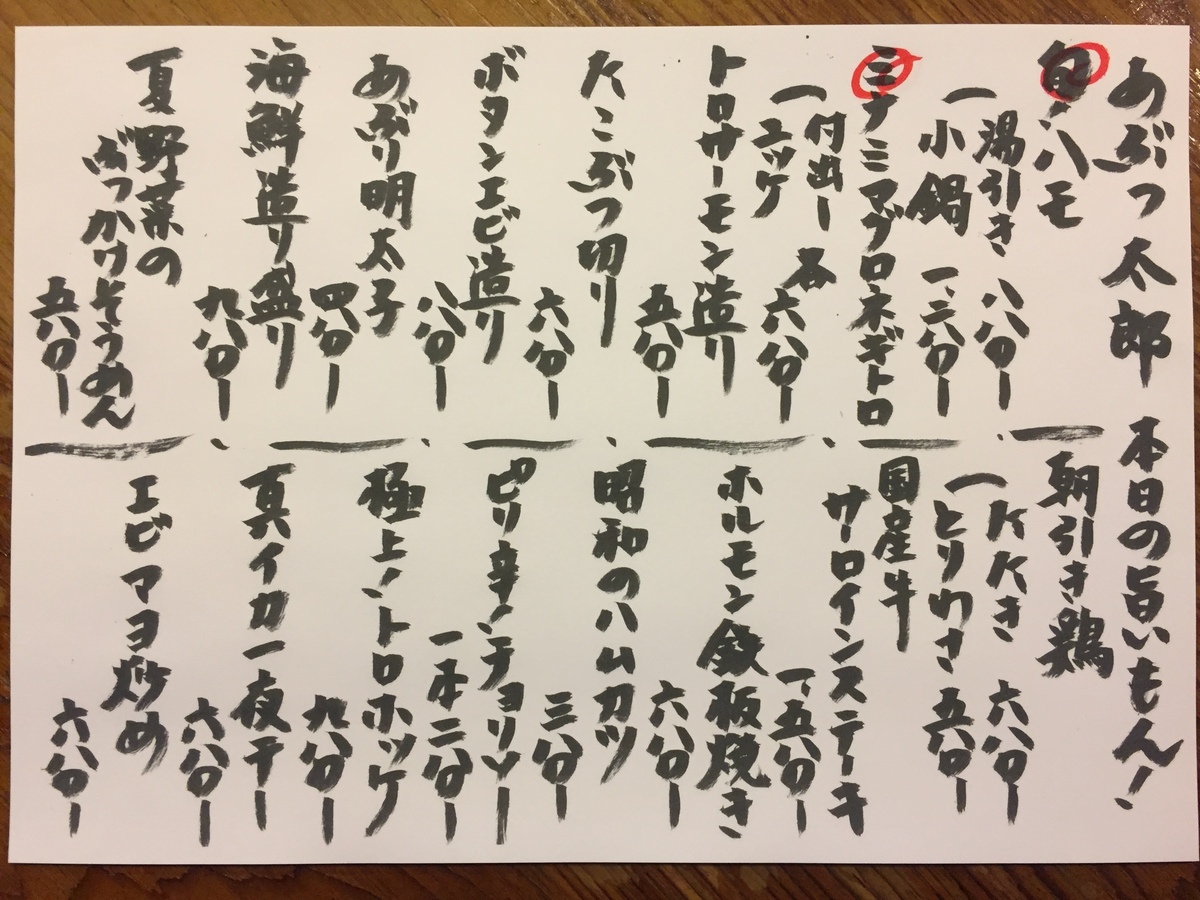 あぶつ太郎 本日の旨いもん!
旬!ハモ
湯引き 八八〇ー
小鍋 一、二八〇ー
ミナミマグロネギトロ
付出し
ユッケ 各六八〇ー
トロサーモン造り
五八〇ー
たこぶつ切り
六八〇ー
ボタンエビ造り
八八〇ー
あぶり明太子
四八〇ー
海鮮造り盛り
九八〇ー
夏野菜の
ぶっかけそうめん
五八〇ー
朝引き鶏
たたき 六八〇ー
とりわさ 五八〇ー
国産牛
サーロインステーキ
一、五八〇ー
ホルモン鉄板焼き
六八〇ー
昭和のハムカツ
三八〇ー
ピリ辛!チョリソー
一本二八〇ー
極上!トロホッケ
九八〇ー
真イカ一夜干し
六八〇ー
エビマヨ炒め
六八〇ー